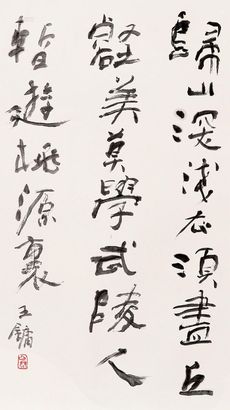 歸山深淺去須盡丘
壑美莫學武陵人
暫遊桃源裏
王鏞